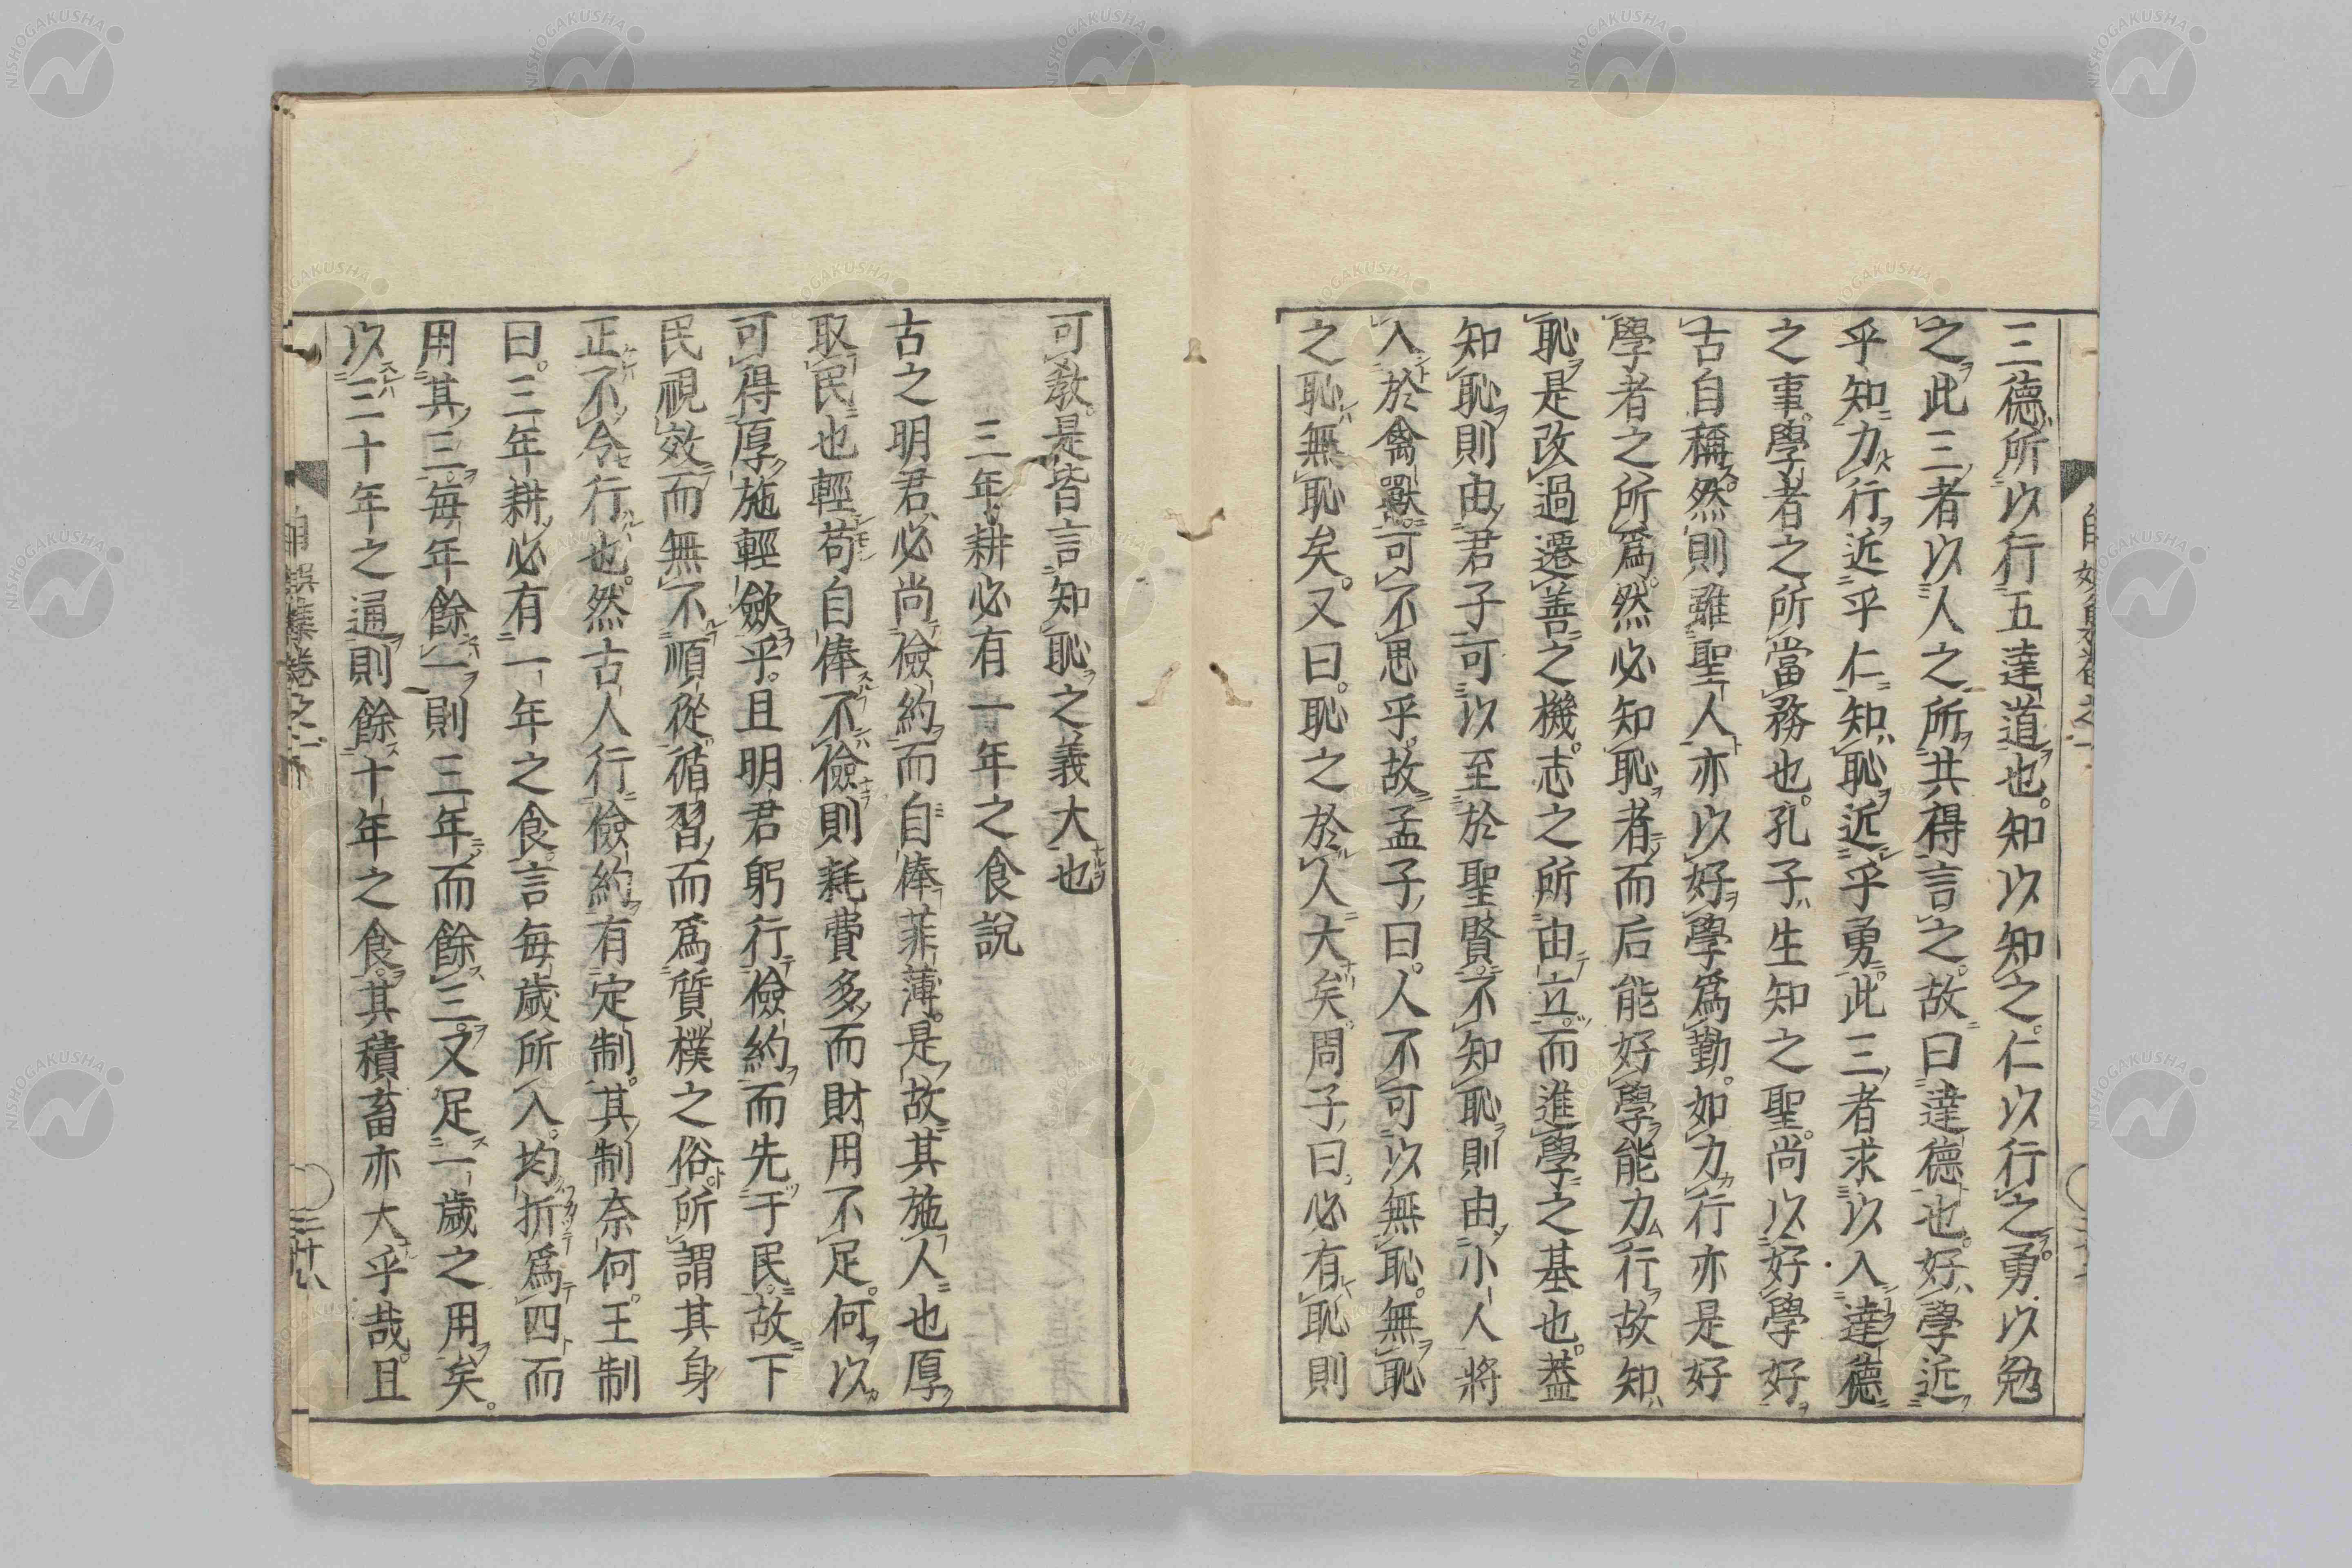 三德所以行五達道也。知以知之。仁以行之。勇以勉
之此三者以人之所共得言之。故曰達德也。好學近
乎知力行近乎仁知恥近乎勇。此三者求以入達德
之事。學者之所當務也。孔子生知之聖。尚以好學好
古自稱。然則雖聖人亦以好學爲勤。如力行亦是好
學者之所爲。然必知恥者而后能好學能力行故知
恥是改過遷善之機。志之所由立。而進學之基也。蓋
知恥則由君子可以至於聖賢。不知恥則由小人將
入於禽獸。可不思乎。故孟子曰。人不可以無恥。無恥
之恥無恥矣。又曰。恥之於人大矣。周子曰。必有恥則
可教。是皆言知恥之義大也
三年耕必有一年之食說
古之明君必尚儉約而自俸菲薄。是故其施人也厚
取民也輕苟自俸不儉則耗費多而財用不足。何以
可得厚施輕歛乎。且明君躬行儉約而先于民。故下
民視效而無不順從。循習而爲質樸之俗所謂其身
正不令行也。然古人行儉約有定制。其制奈何。王制
曰。三年耕必有一年之食言每歲所入。均折爲四而
用其三。每年餘一則三年而餘三。又足一歲之用矣。
以三十年之通則餘十年之食。其積畜亦大乎哉。且
自娛集卷之二